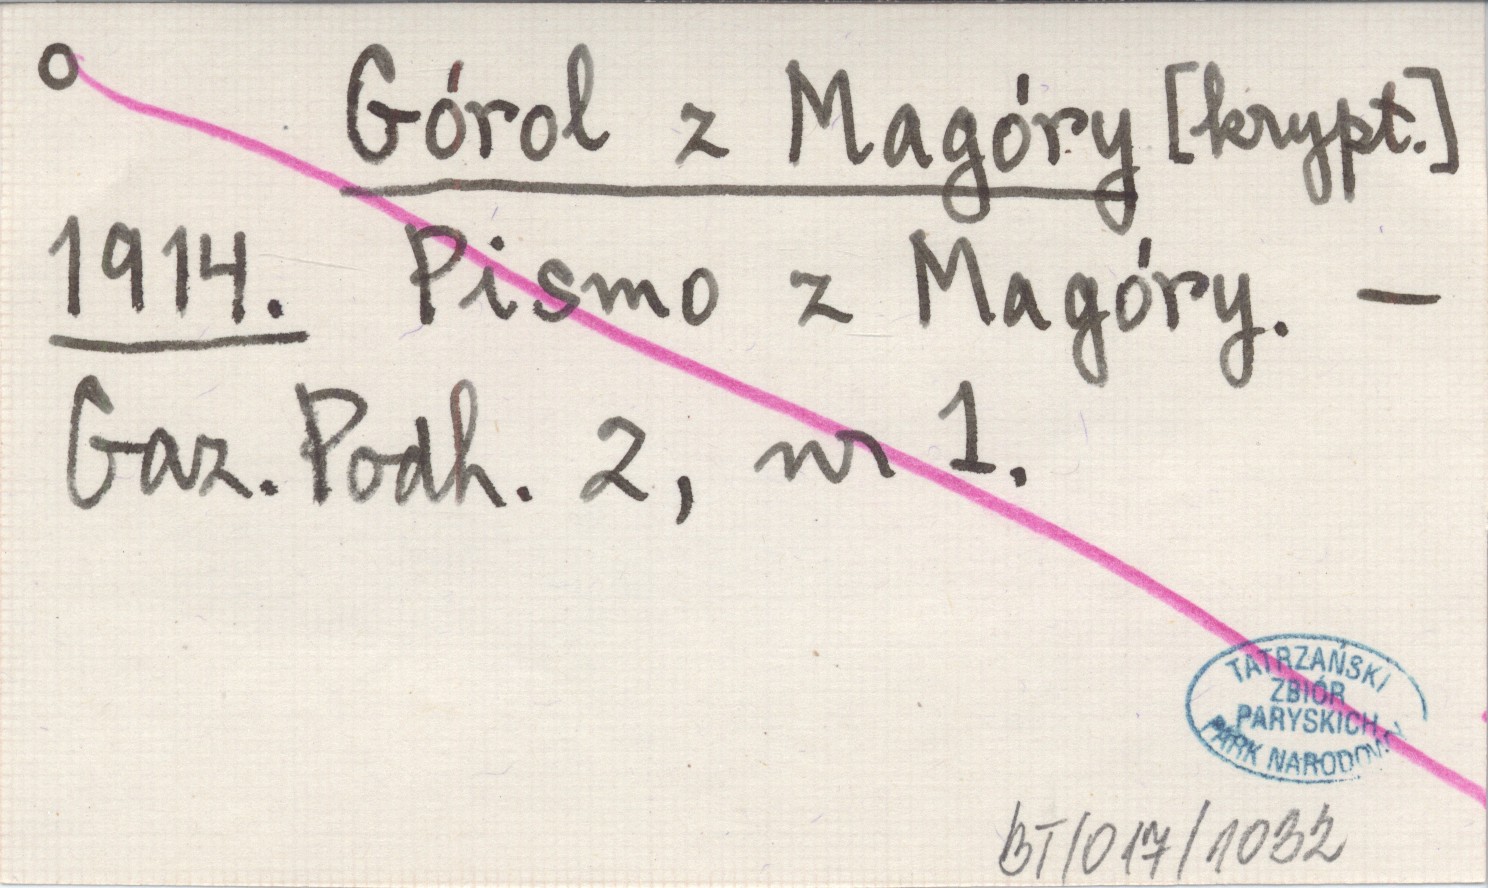 o Górol z Magóry [krypt.]
1914. Pismo z Magóry. —
Gaz. Podh. 2, nr 1.
TATRZAŃSKI
ZBIÓR
PARYSKICH
PARK NARODOWY
BT/017/1032